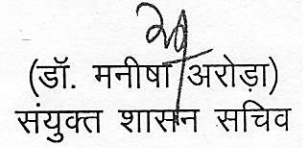 (डॉ. मनीषा अरोड़ा)
संयुक्त शासन सचिव